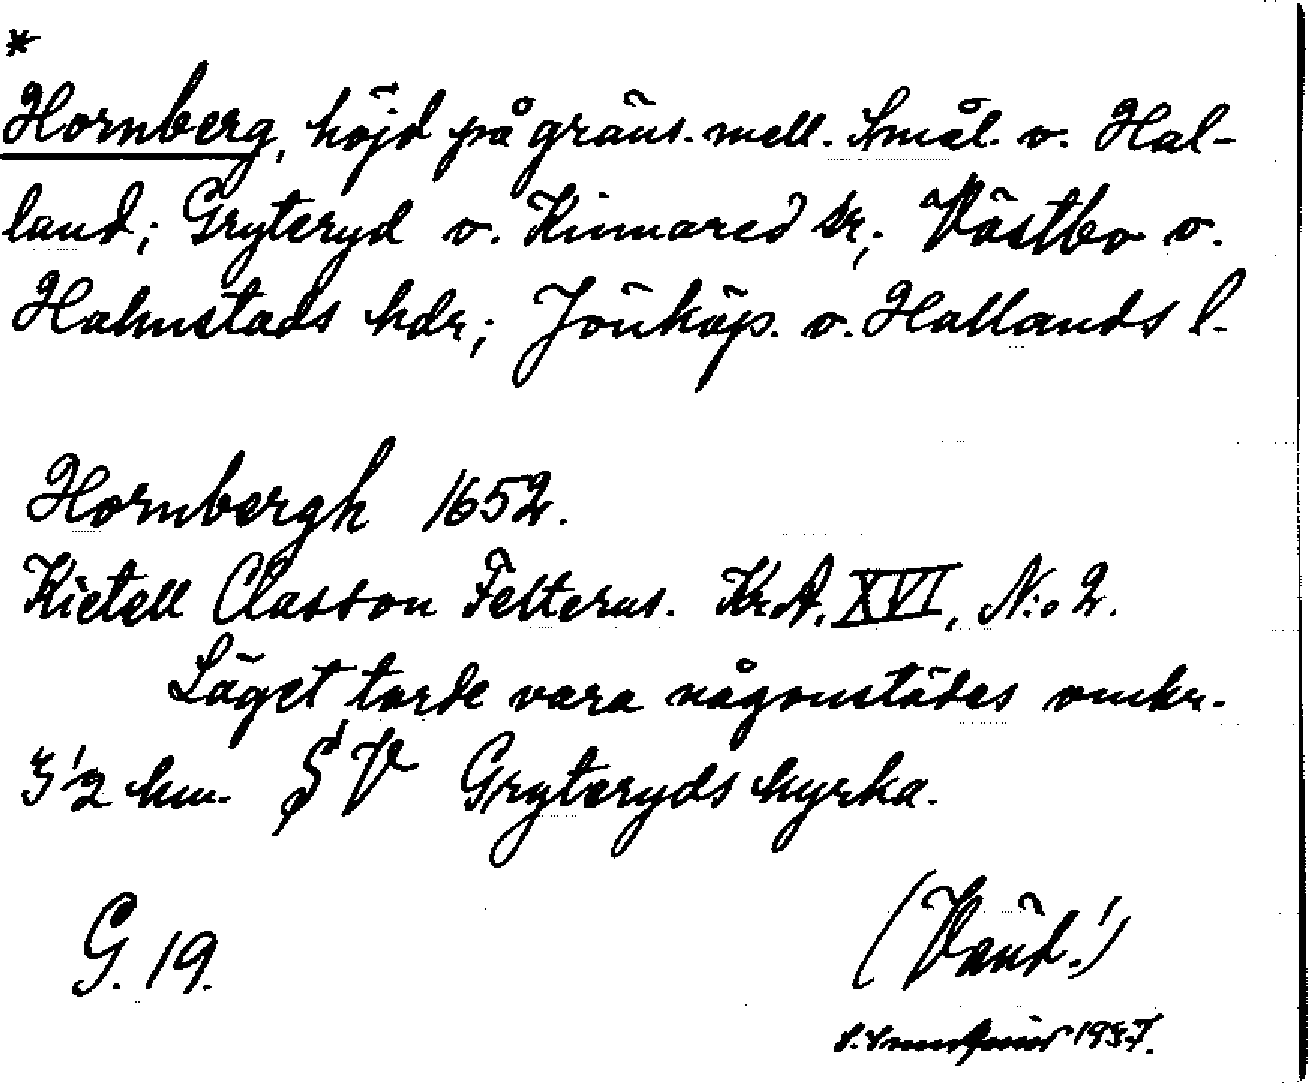 *
Hornberg, höjd på gräns. mell. Smål. o. Hal-
land; Gryteryd o. Kinnared sr; Västbo o.
Halmstads hdr; Jönköp. o. Hallands l.
Hornbergh 1652.
Kietell Classon Felterus. Kr.A. XVI, N:o 2.
Läget torde vara någonstädes omkr.
3 1/2 km. SV Gryteryds kyrka.
G. 19.
(Vänd!)
1957.